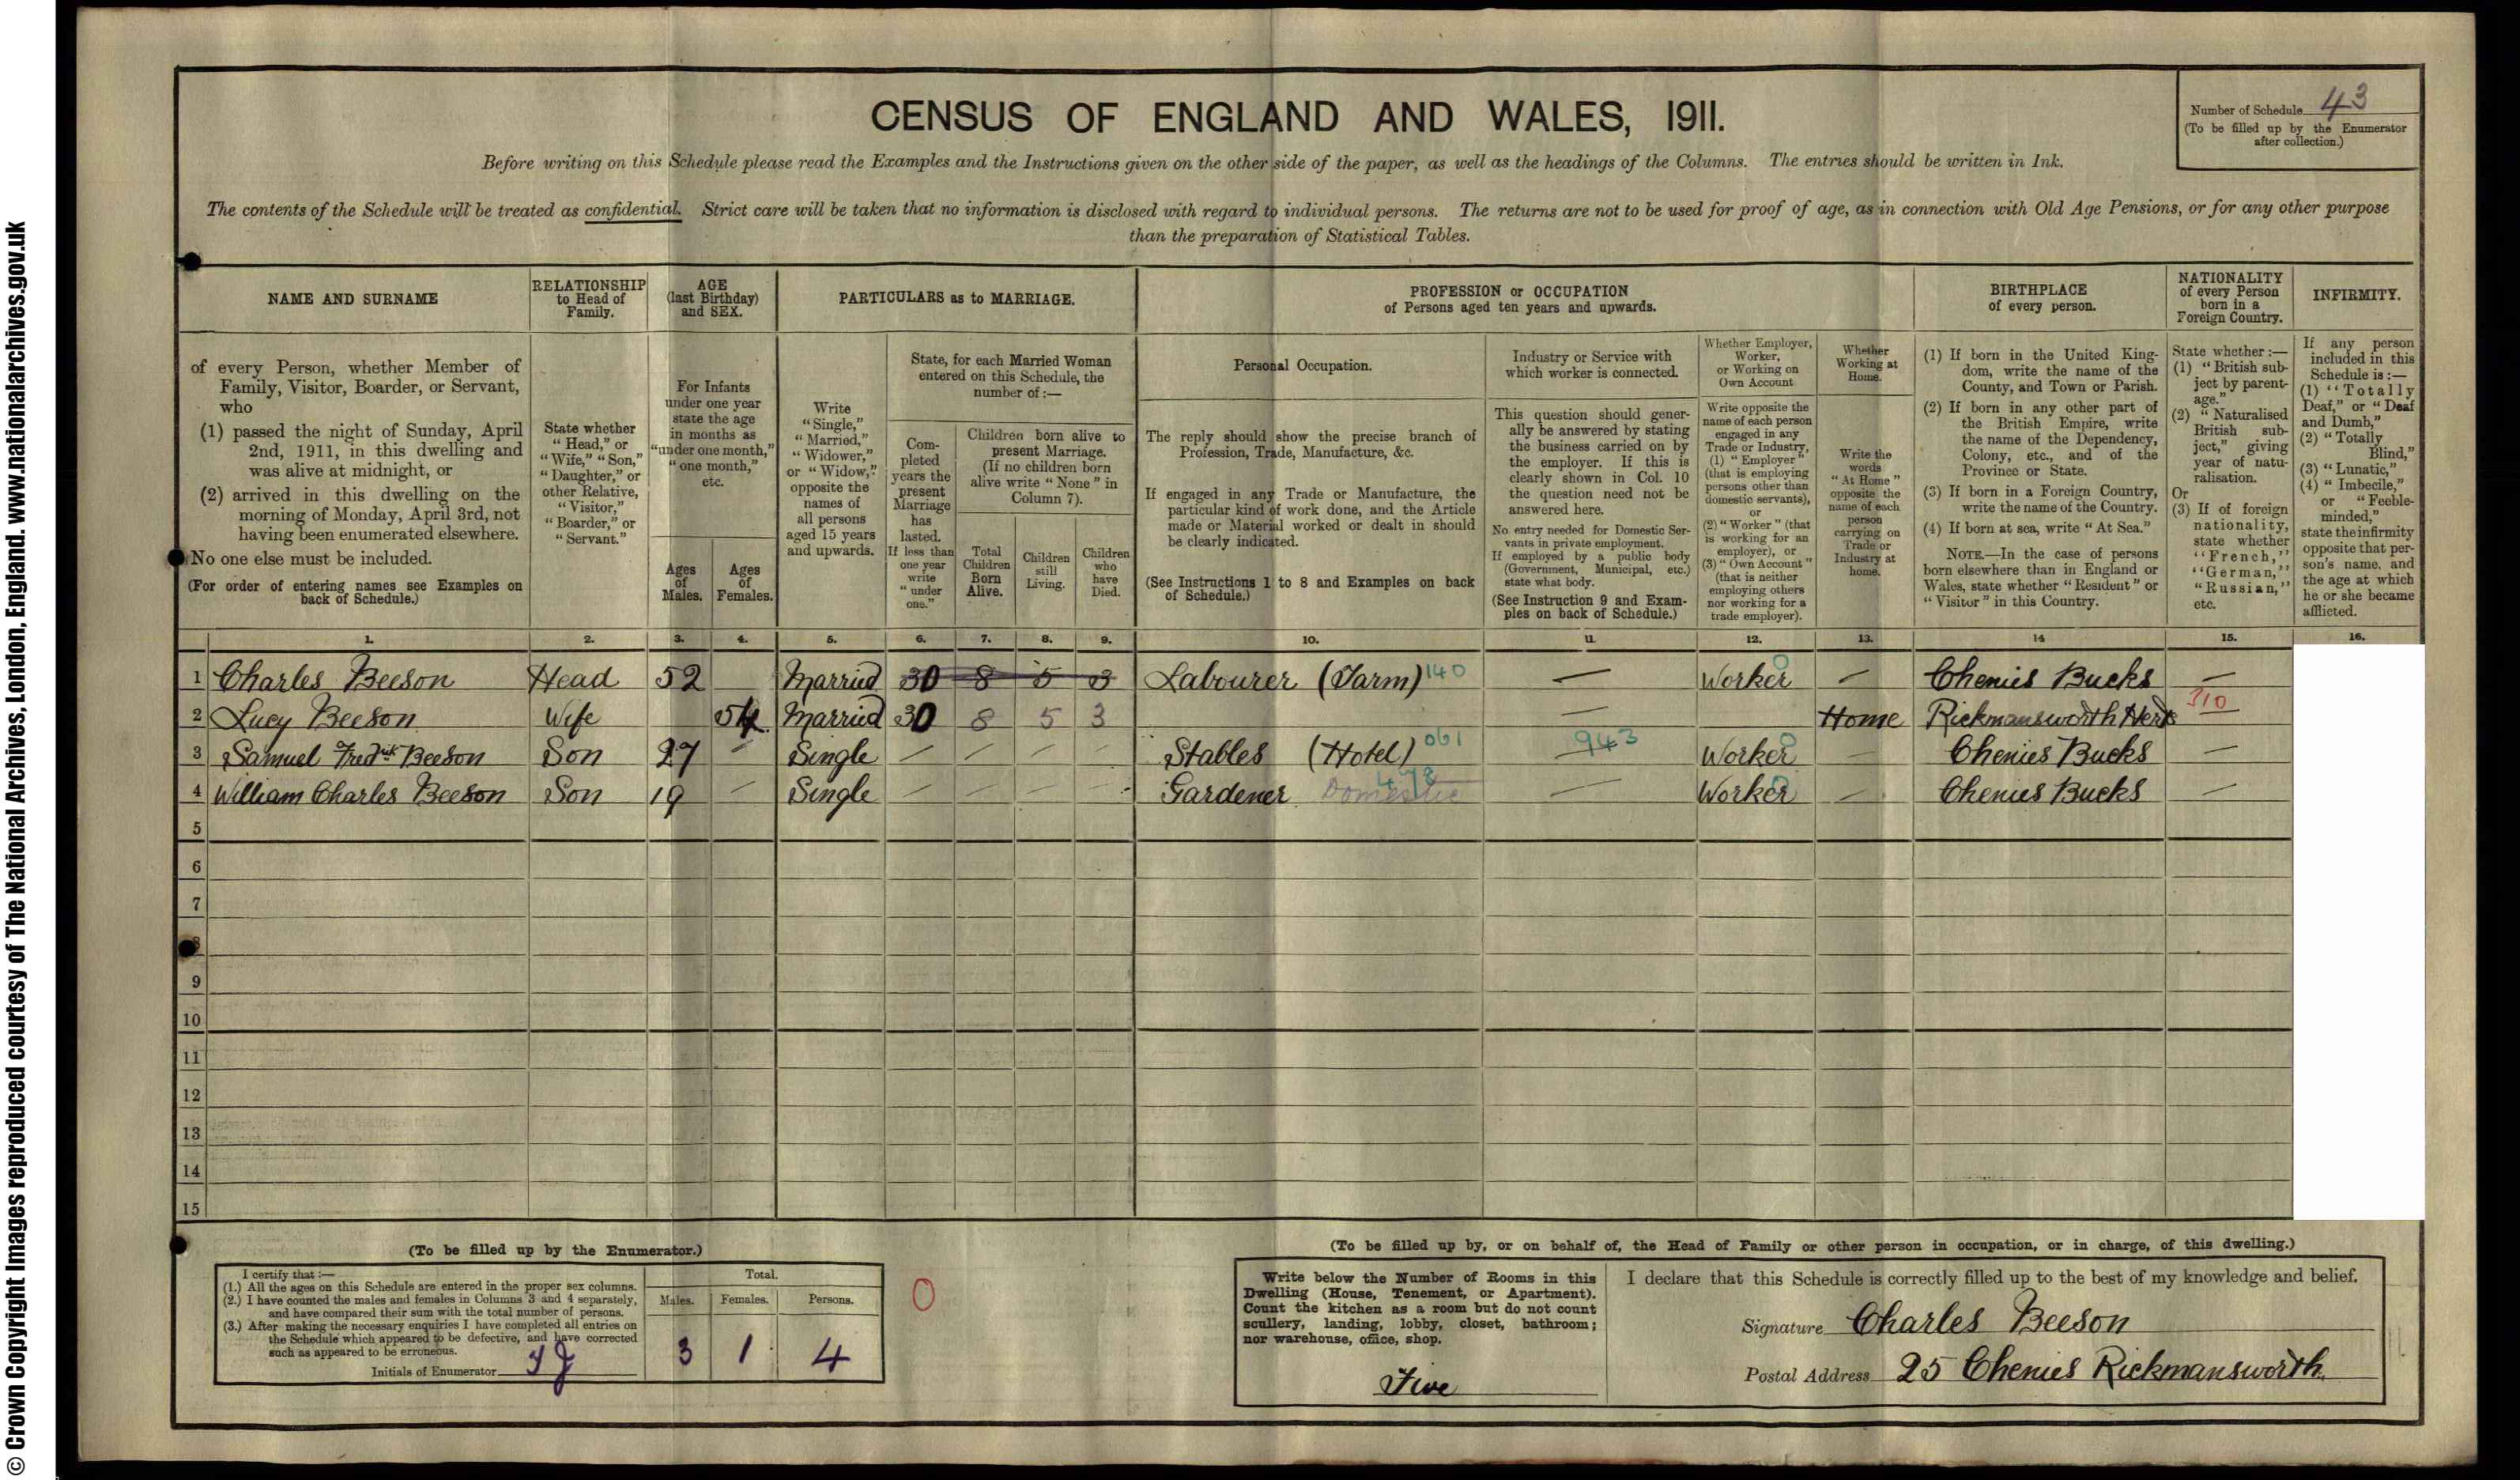 © Crown Copyright Images reproduced courtesy of The National Archives, London, England. www.nationalarchives.gov.uk
CENSUS OF ENGLAND AND WALES, 1911.
Number of Schedule 43
(To be filled up by the Enumerator
after collection.)
Before writing on this Schedule please read the Examples and the Instructions given on the other side of the paper, as well as the headings of the Columns. The entries should be written in Ink.
The contents of the Schedule will be treated as confidential. Strict care will be taken that no information is disclosed with regard to individual persons. The returns are not to be used for proof of age, as in connection with Old Age Pensions, or for any other purpose
than the preparation of Statistical Tables.
NAME AND SURNAME
of every Person, whether Member of
Family, Visitor, Boarder, or Servant,
who
(1) passed the night of Sunday, April
2nd, 1911, in this dwelling and
was alive at midnight, or
(2) arrived in this dwelling on the
morning of Monday, April 3rd, not
having been enumerated elsewhere.
No one else must be included.
(For order of entering names see Examples on
back of Schedule.)
RELATIONSHIP
to Head of
Family.
State whether
"Head," or
"Wife," "Son,"
"Daughter," or
other Relative,
"Visitor,"
"Boarder," or
"Servant."
AGE
(last Birthday)
and SEX.
For Infants
under one year
state the age
in months as
"under one month,"
"one month,"
etc.
Ages
of
Males.
Ages
of
Females.
PARTICULARS as to MARRIAGE.
Write
"Single,"
"Married,"
"Widower,"
or "Widow,"
opposite the
names of
all persons
aged 15 years
and upwards.
State, for each Married Woman
entered on this Schedule, the
number of:—
Com-
pleted
years the
present
Marriage
has
lasted.
If less than
one year
write
"under
one."
Children born alive to
present Marriage.
(If no children born
alive write "None" in
Column 7).
Total
Children
Born
Alive.
Children
still
Living.
Children
who
have
Died.
PROFESSION or OCCUPATION
of Persons aged ten years and upwards.
Personal Occupation.
The reply should show the precise branch of
Profession, Trade, Manufacture, &c.
If engaged in any Trade or Manufacture, the
particular kind of work done, and the Article
made or Material worked or dealt in should
be clearly indicated.
(See Instructions 1 to 8 and Examples on back
of Schedule.)
Industry or Service with
which worker is connected.
This question should gener-
ally be answered by stating
the business carried on by
the employer. If this is
clearly shown in Col. 10
the question need not be
answered here.
No entry needed for Domestic Ser-
vants in private employment.
If employed by a public body
(Government, Municipal, etc.)
state what body.
(See Instruction 9 and Exam-
ples on back of Schedule.)
Whether Employer,
Worker,
or Working on
Own Account
Write opposite the
name of each person
engaged in any
Trade or Industry,
(1) "Employer"
(that is employing
persons other than
domestic servants),
or
(2) "Worker" (that
is working for an
employer), or
(3) "Own Account"
(that is neither
employing others
nor working for a
trade employer).
Whether
Working at
Home.
Write the
words
"At Home"
opposite the
name of each
person
carrying on
Trade or
Industry at
home.
BIRTHPLACE
of every person.
(1) If born in the United King-
dom, write the name of the
County, and Town or Parish.
(2) If born in any other part of
the British Empire, write
the name of the Dependency,
Colony, etc., and of the
Province or State.
(3) If born in a Foreign Country,
write the name of the Country.
(4) If born at sea, write "At Sea."
NOTE.—In the case of persons
born elsewhere than in England or
Wales, state whether "Resident" or
"Visitor" in this Country.
NATIONALITY
of every Person
born in a
Foreign Country.
State whether:—
(1) "British sub-
ject by parent-
age."
(2) "Naturalised
British sub-
ject," giving
year of natu-
ralisation.
Or
(3) If of foreign
nationality,
state whether
"French,"
"German,"
"Russian,"
etc.
INFIRMITY.
If any person
included in this
Schedule is:—
(1) "Totally
Deaf," or "Deaf
and Dumb,"
(2) "Totally
Blind,"
(3) "Lunatic,"
(4) "Imbecile,"
or "Feeble-
minded,"
state the infirmity
opposite that per-
son's name, and
the age at which
he or she became
afflicted.
1. 2. 3. 4. 5. 6. 7. 8. 9. 10. 11. 12. 13. 14 15. 16.
1 Charles Beeson Head 52 Married 30 8 5 3 Labourer (Farm) 140 — Worker 0 — Chenies Bucks —
2 Lucy Beeson Wife 54 Married 30 8 5 3 — Home Rickmansworth Herts 310 —
3 Samuel Fredrk Beeson Son 27 — Single — — — — Stables (Hotel) 061 943 Worker 0 — Chenies Bucks —
4 William Charles Beeson Son 19 — Single — — — — Gardener Domestic — Worker 0 — Chenies Bucks —
5
6
7
8
9
10
11
12
13
14
15
(To be filled up by the Enumerator.)
I certify that:—
(1.) All the ages on this Schedule are entered in the proper sex columns.
(2.) I have counted the males and females in Columns 3 and 4 separately,
and have compared their sum with the total number of persons.
(3.) After making the necessary enquiries I have completed all entries on
the Schedule which appeared to be defective, and have corrected
such as appeared to be erroneous.
Initials of Enumerator
Total.
Males. Females. Persons.
3 1 4
0
(To be filled up by, or on behalf of, the Head of Family or other person in occupation, or in charge, of this dwelling.)
Write below the Number of Rooms in this
Dwelling (House, Tenement, or Apartment).
Count the kitchen as a room but do not count
scullery, landing, lobby, closet, bathroom;
nor warehouse, office, shop.
Five
I declare that this Schedule is correctly filled up to the best of my knowledge and belief.
Signature Charles Beeson
Postal Address 25 Chenies Rickmansworth